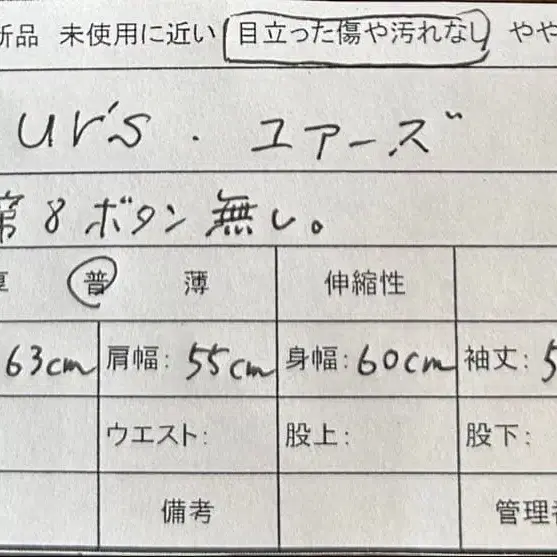 新品 未使用に近い 目立った傷や汚れなし やや
ur's・ユアーズ
第8ボタン無し。
厚 普 薄 伸縮性
63cm 肩幅: 55cm 身幅: 60cm 袖丈: 5
ウエスト: 股上: 股下:
備考 管理者